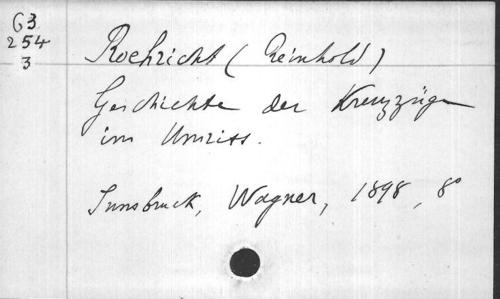 63
254
3
Roehricht (Reinhold)
Geschichte der Kreuzzüge
im Umriss.
Innsbruck, Wagner, 1898, 8°